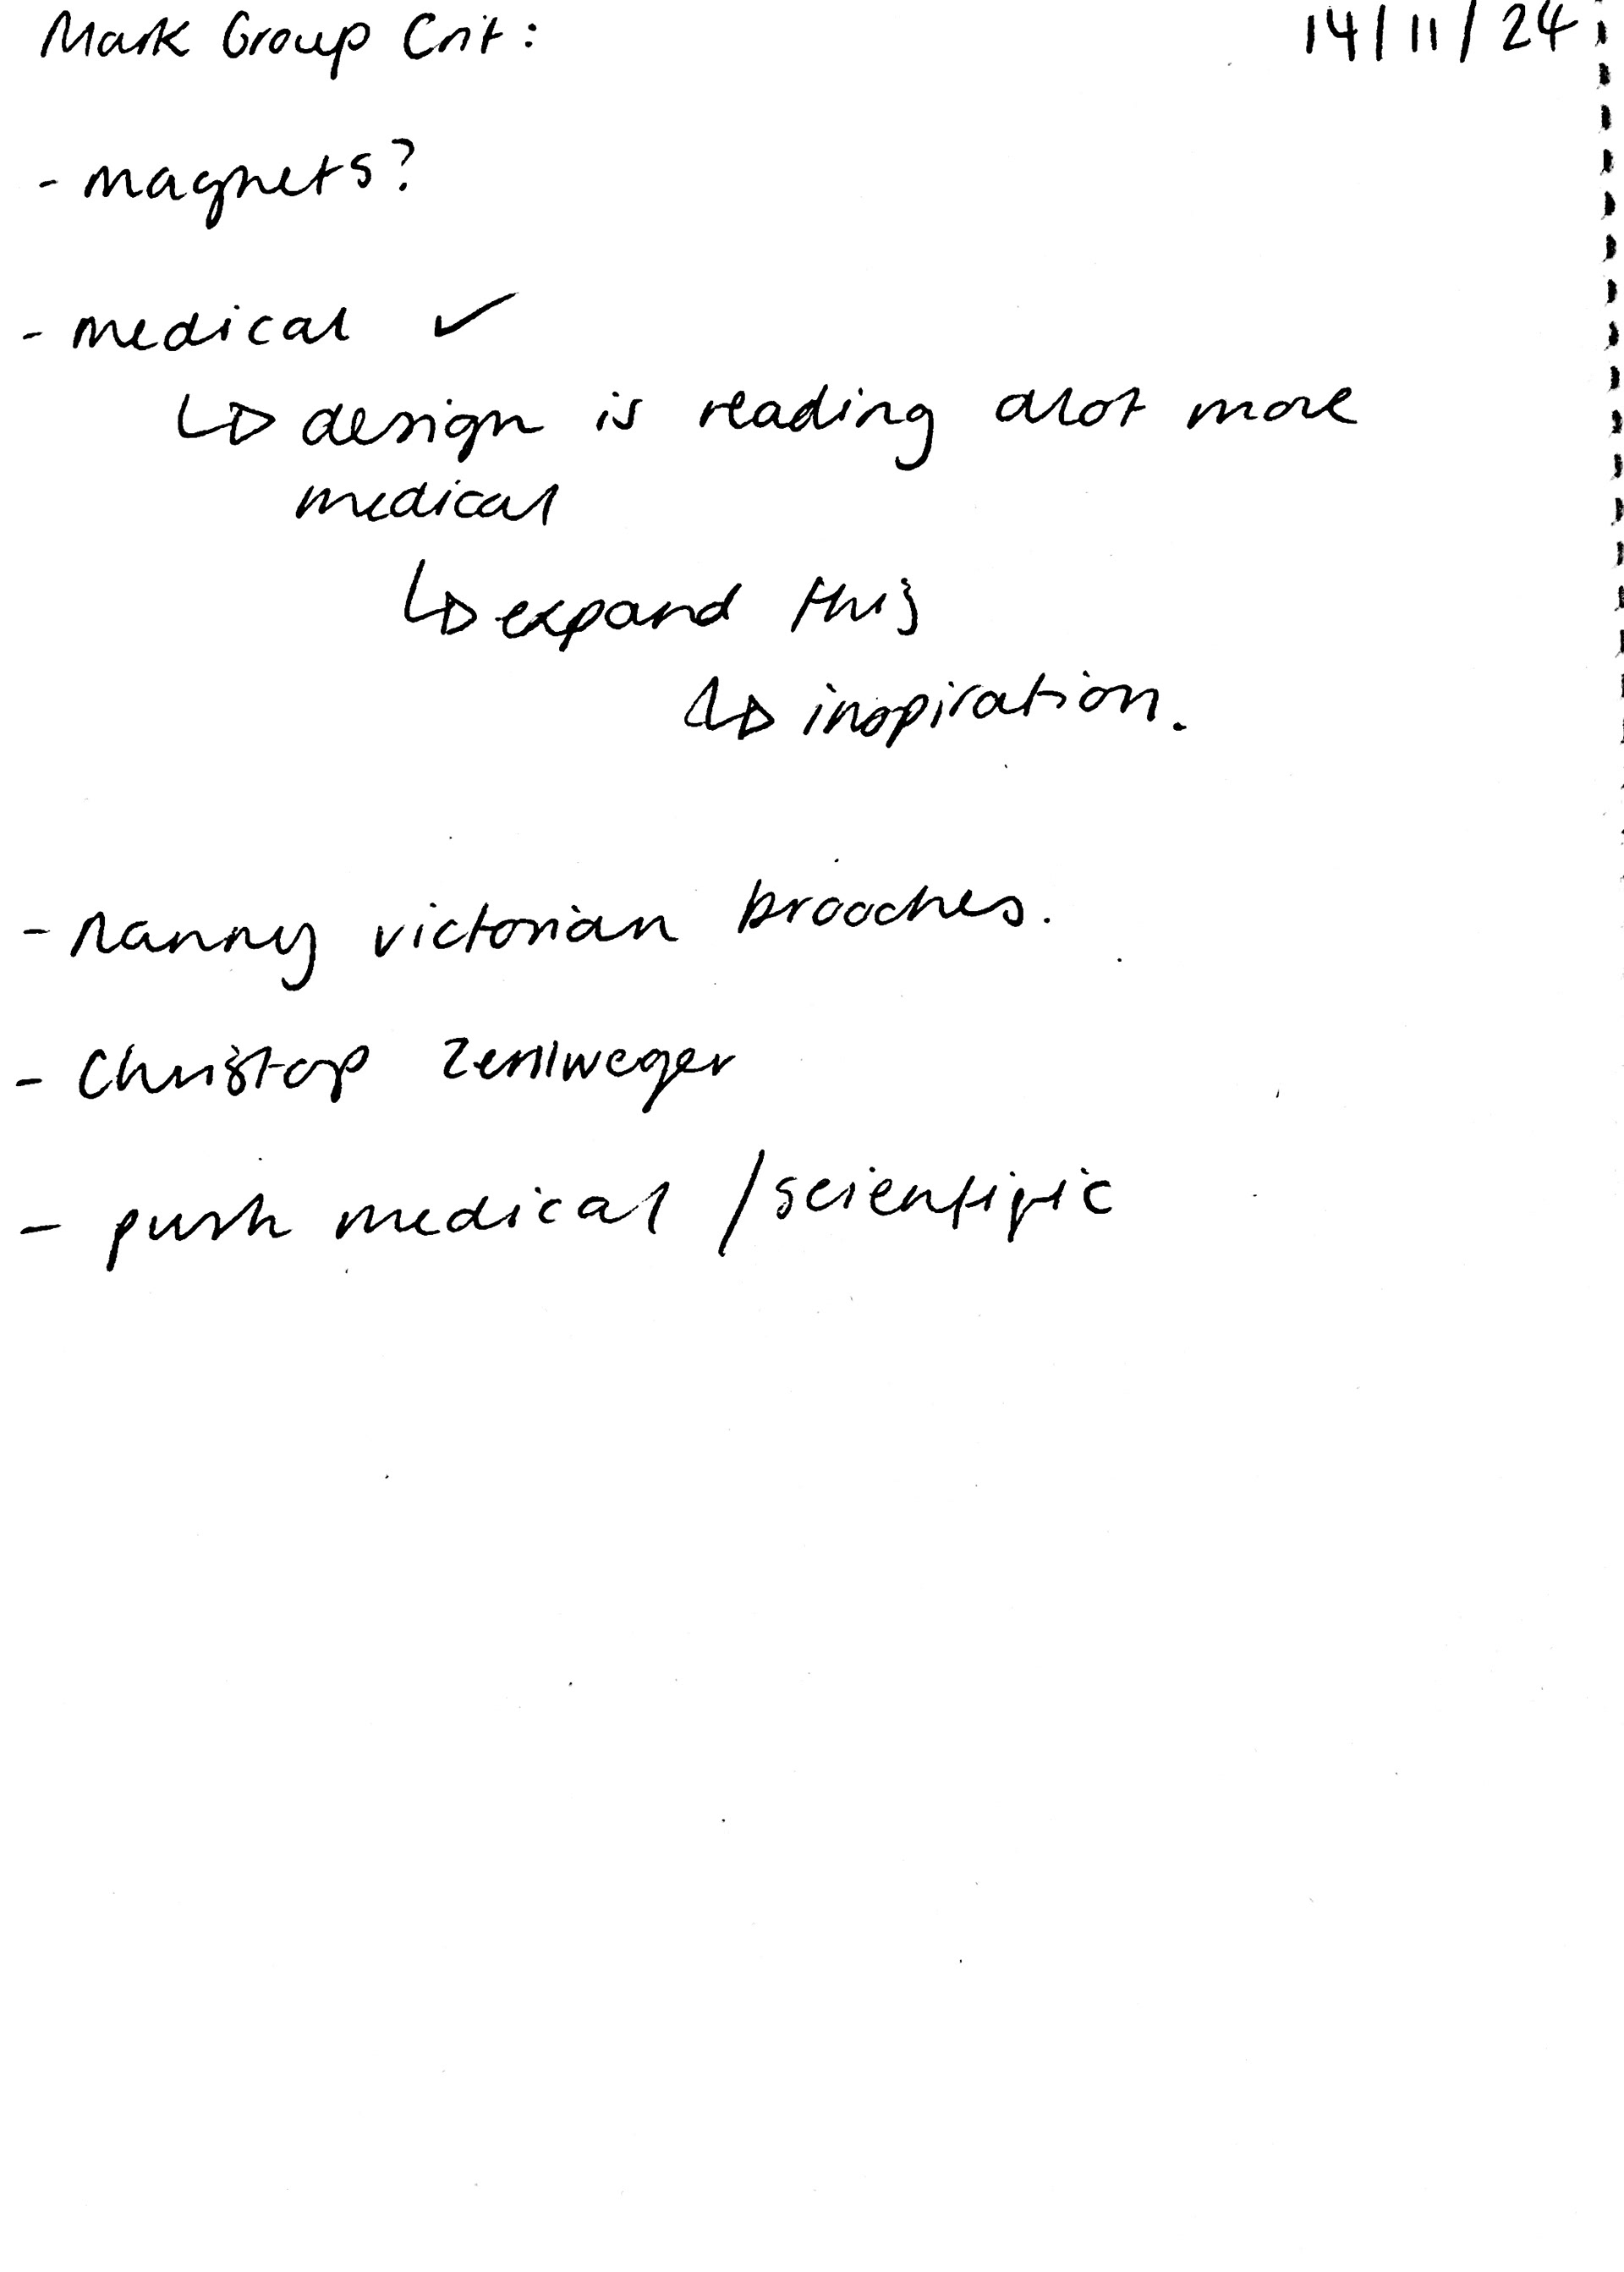 Mark Group Crit: 14/11/24
- magnets?
- medical ✓
↳ design is reading alot more
medical
↳ expand this
↳ inspiration.
- nanny victorian brooches.
- Christop Zellweger
- push medical / scientific